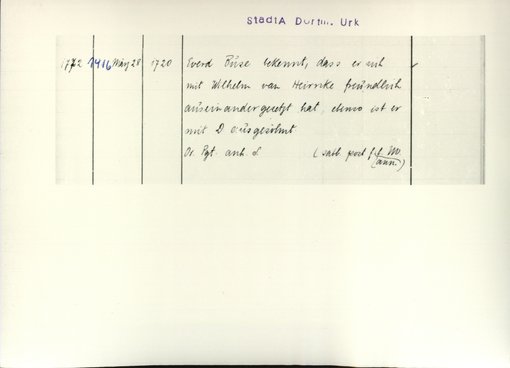 StadtA Dortm. Urk
1772 1416 März 28 1720 Everd Buse bekennt, dass er sich
mit Wilhelm van Heirike freundlich
auseinandergesetzt hat, ebenso ist er
mit D ausgesöhnt.
Or. Pgt. anh. S. (sabb. post f.
ann.)